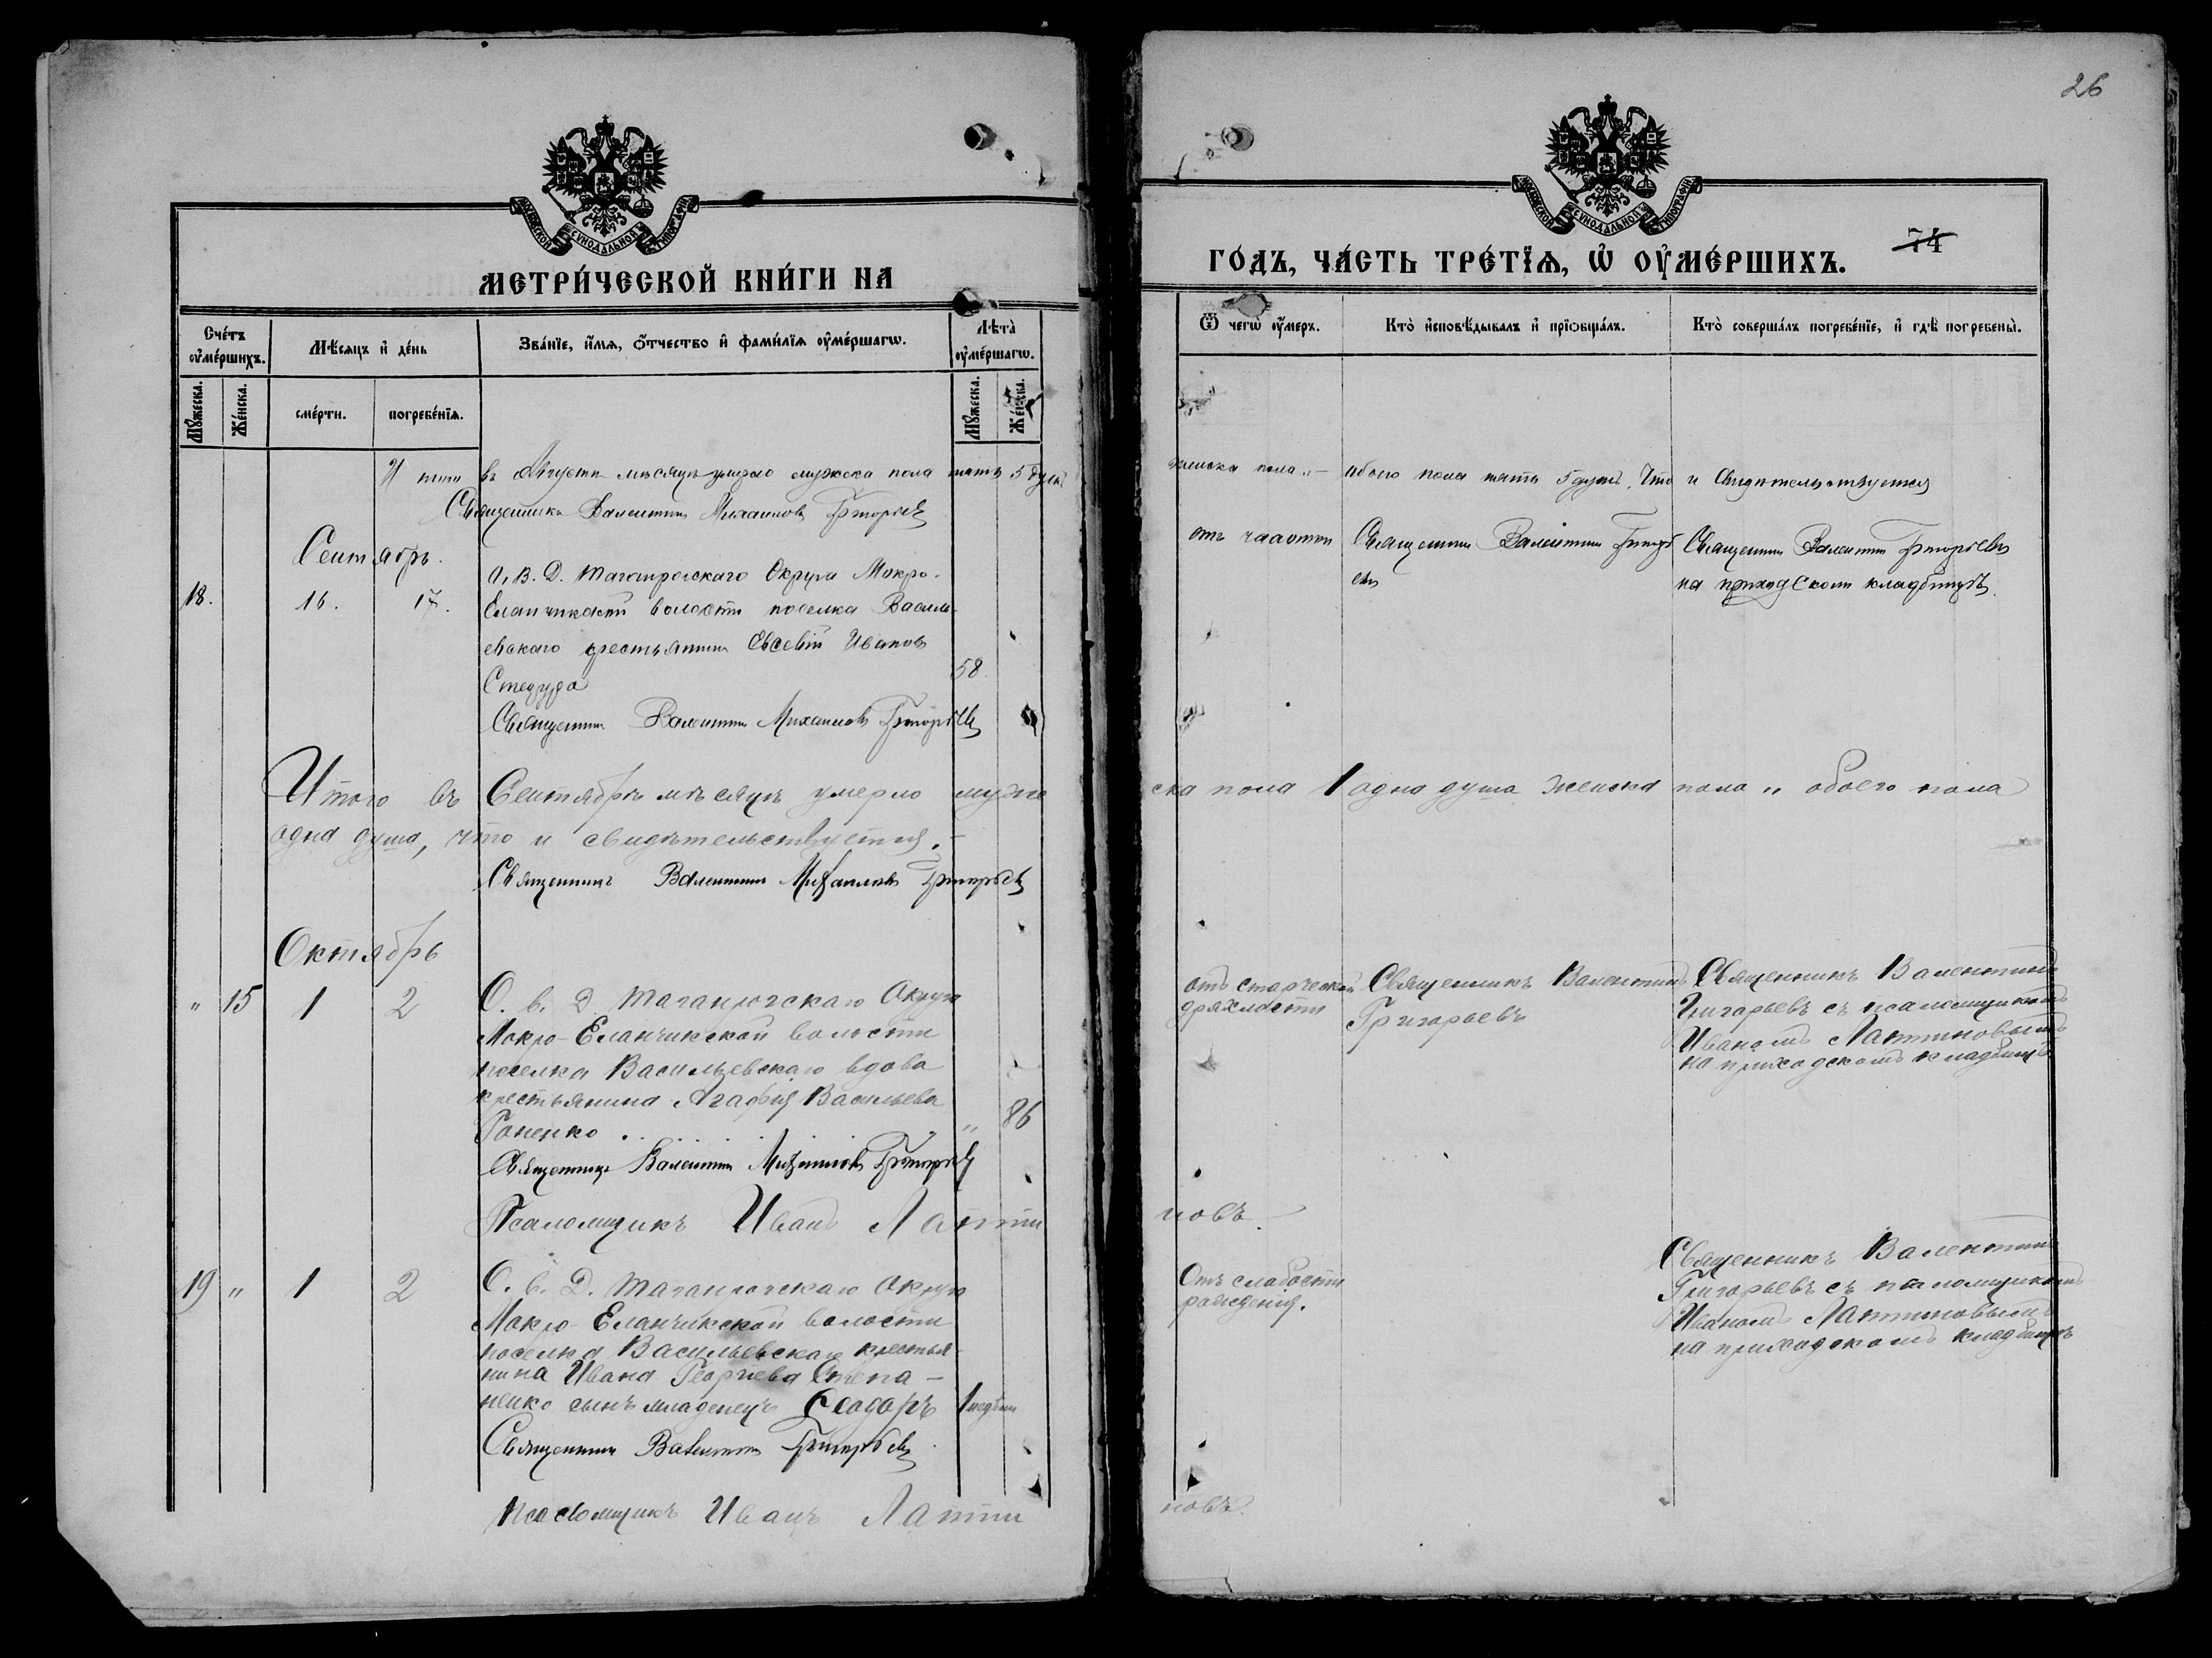 26
МОСКОВСКОЙ СУНОДАЛЬНОЙ ТИПОГРАФІИ
МОСКОВСКОЙ СУНОДАЛЬНОЙ ТИПОГРАФІИ
МЕТРИ́ЧЕСКОЙ КНИ́ГИ НА
ГО́ДЪ, ЧА́СТЬ ТРЕ́ТЇѦ, Ѡ҆ ОУ҆МЕ́РШИХЪ.
74
Сче́тъ оу҆ме́ршихъ.
Мѣ́сяцъ и҆ де́нь
Зва́нїе, и҆́мѧ, ѻ҆́тчество и҆ фами́лїѧ оу҆ме́ршагѡ.
Лѣ́та оу҆ме́ршагѡ.
Ѿ чегѡ̀ оу҆́меръ.
Кто̀ и҆сповѣ́дывалъ и҆ прїѡбща́лъ.
Кто̀ соверша́лъ погребе́нїе, и҆ гдѣ̀ погребены̀.
Мꙋ́жеска.
Же́нска.
сме́рти.
погребе́нїѧ.
Мꙋ́жеска.
Же́нска.
въ Августѣ мѣсяцѣ умерло мужска пола пять 5 душъ
женска пола „ — обоего пола пять 5 душъ, Что и свидѣтельствуется
Священникъ Валентинъ Михаиловъ Григорьевъ
Сентябрь.
18.
16.
17.
О. В. Д. Таганрогскаго Округа Мокро-
Еланчикской волости поселка Василь-
евскаго крестьянинъ Евсевій Ивановъ
58.
отъ чахотки
Священникъ Валентинъ Григорь
евъ
Священникъ Валентинъ Григорьевъ
на приходскомъ кладбищѣ.
Священникъ Валентинъ Михаиловъ Григорьевъ
Итого въ Сентябрѣ мѣсяцѣ умерло муже
ска пола 1 одна душа женска пола „ обоего пола
одна душа, что и свидѣтельствуется. —
Священникъ Валентинъ Михаиловъ Григорьевъ
Октябрь
„ 15
1
2
О. в. Д. Таганрогскаго Округа
Мокро-Еланчикской волости
поселка Васильевскаго вдова
крестьянина Агафія Васильева
Гоненко . . . . . . „ „ 86
отъ старческой
дряхлости
Священникъ Валентинъ
Григорьевъ
Священникъ Валентинъ
Григорьевъ съ псаломщикомъ
Иваномъ Лаптиновымъ
на приходскомъ кладбищѣ
Священникъ Валентинъ Михаиловъ Григорьевъ
Псаломщикъ Иванъ Лапти
новъ.
19 „
1
2
О. в. Д. Таганрогскаго Округа
Мокро-Еланчикской волости
поселка Васильевскаго крестья-
нина Ивана Георгіева Степа-
ненко сынъ младенецъ Ѳеодоръ
Отъ слабости
рожденія.
Священникъ Валентинъ
Григорьевъ съ псаломщикомъ
Иваномъ Лаптиновымъ
на приходскомъ кладбищѣ
Священникъ Валентинъ Григорьевъ
Псаломщикъ Иванъ Лапти
новъ.